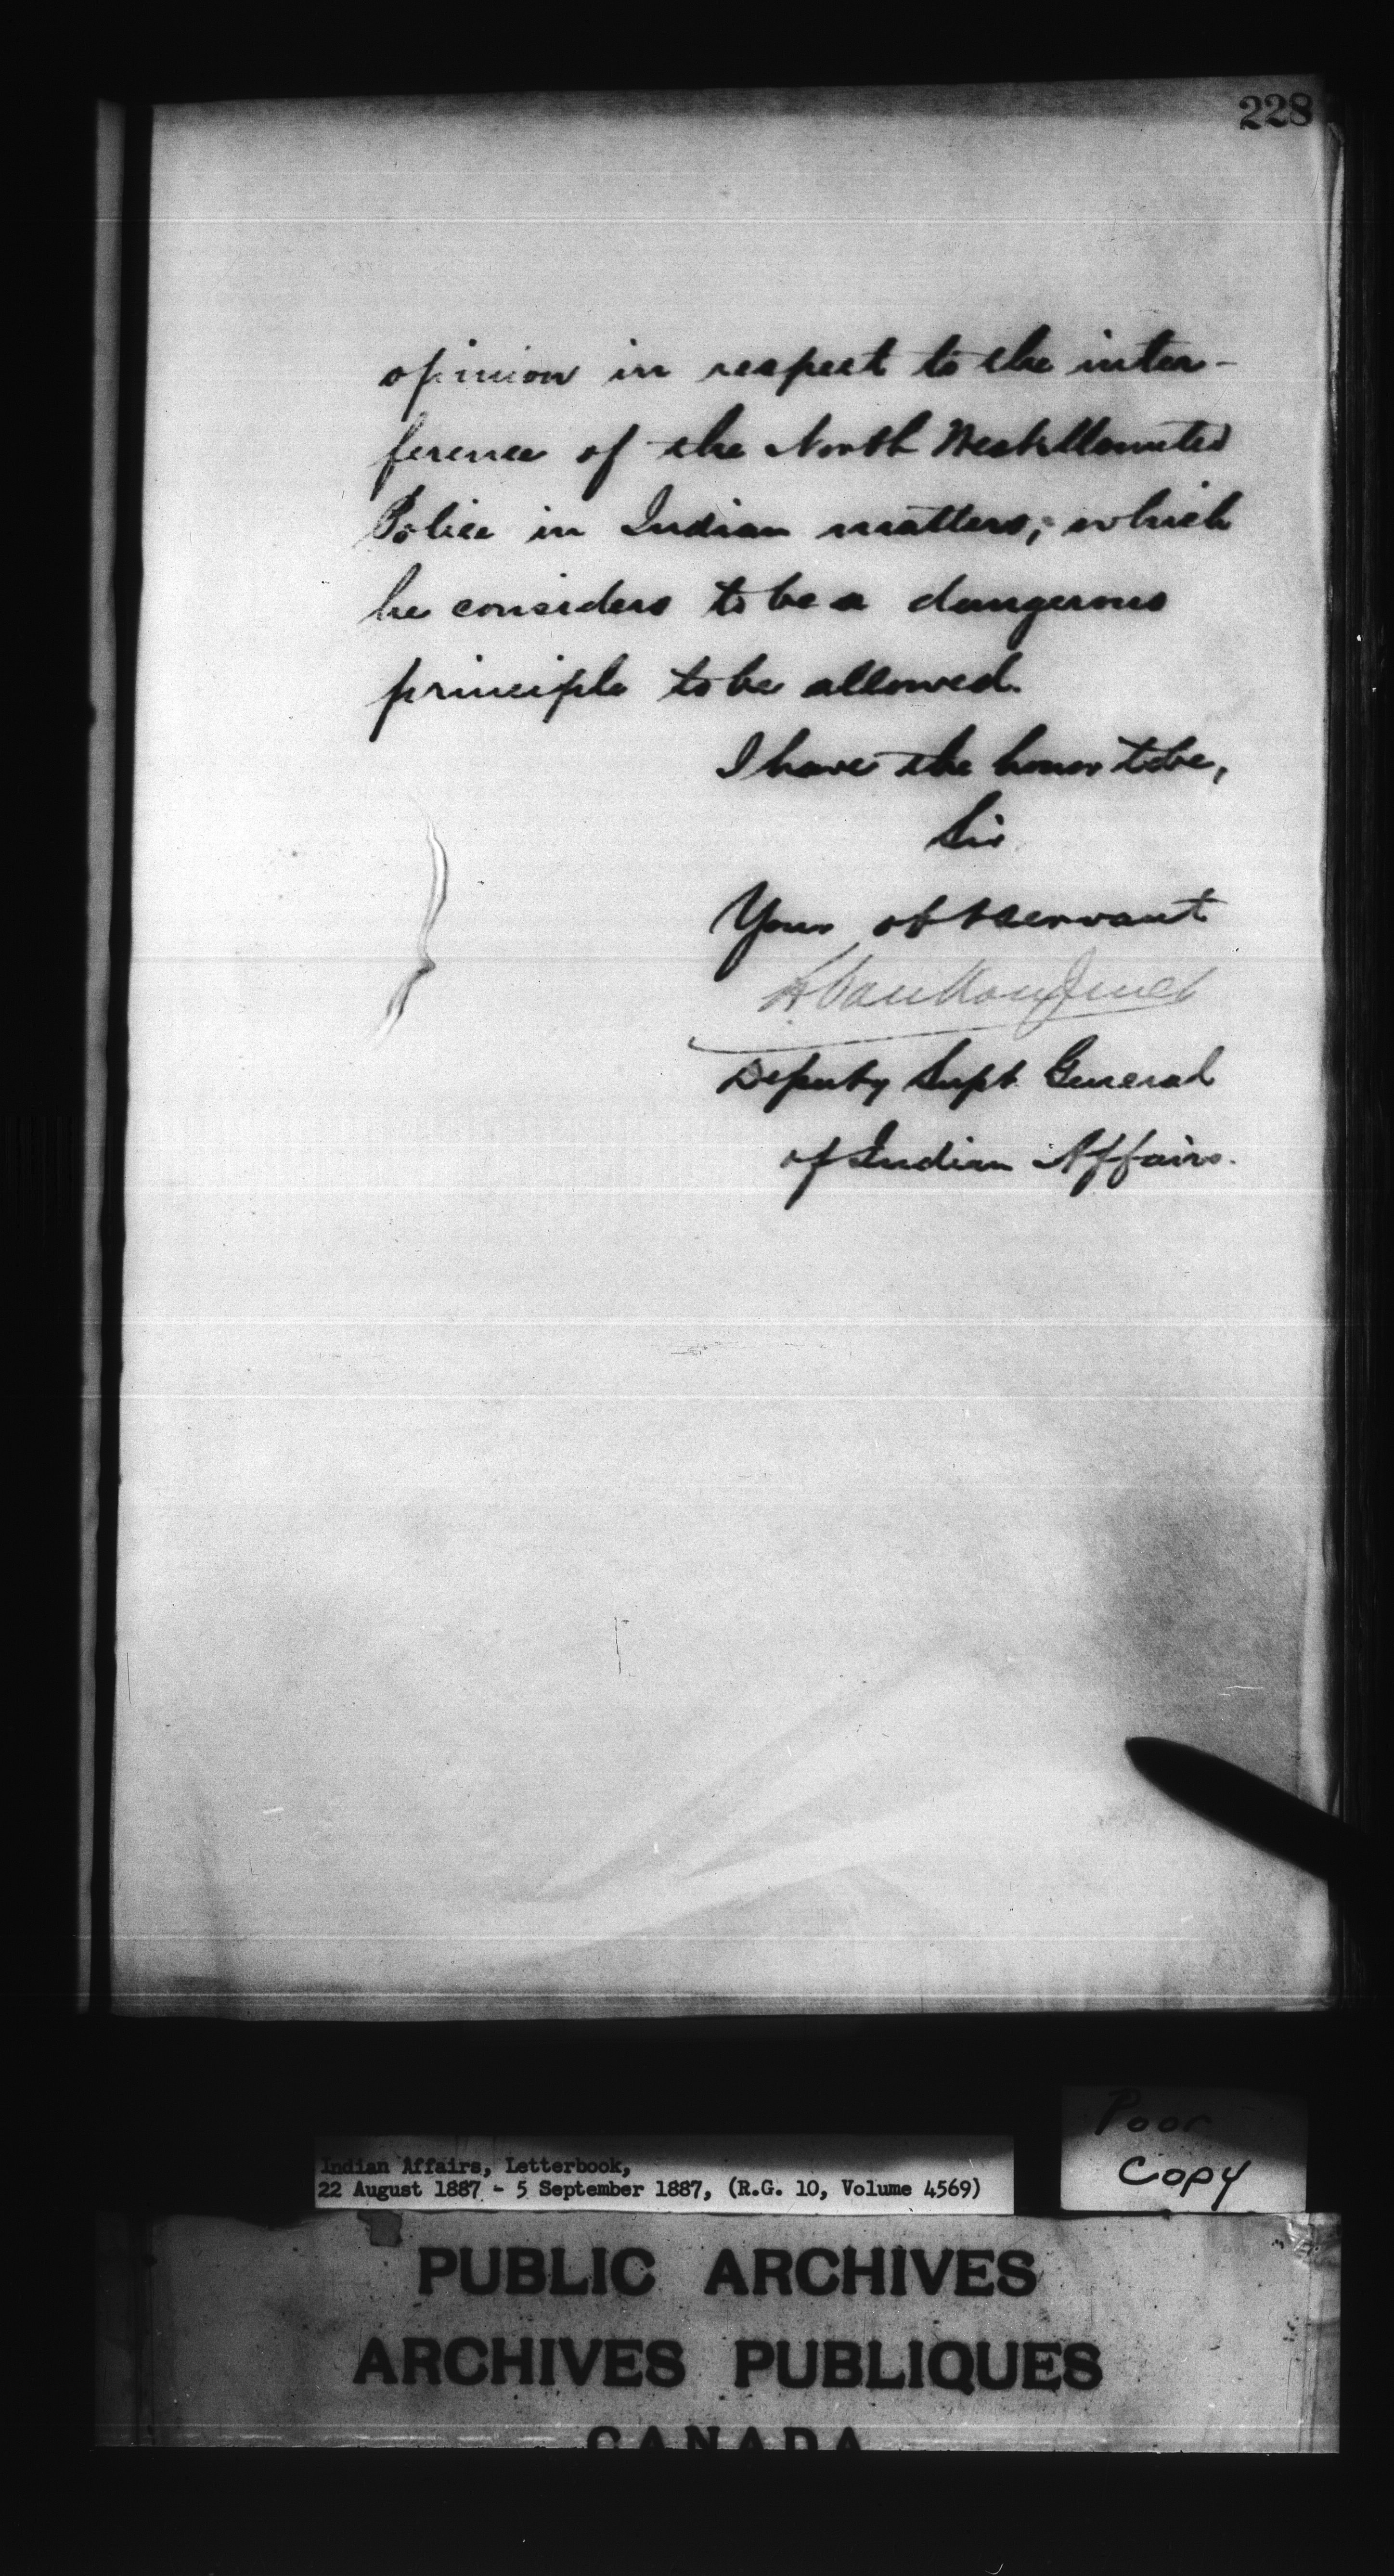 228
opinion in respect to the inter-
ference of the North West Mounted
Police in Indian matters, which
he considers to be a dangerous
principle to be allowed.
I have the honor to be,
Sir
Your obt servant
L. VanKoughnet
Deputy Supt. General
of Indian Affairs.
Poor
Copy
Indian Affairs, Letterbook,
22 August 1887 - 5 September 1887, (R.G. 10, Volume 4569)
PUBLIC ARCHIVES
ARCHIVES PUBLIQUES
CANADA